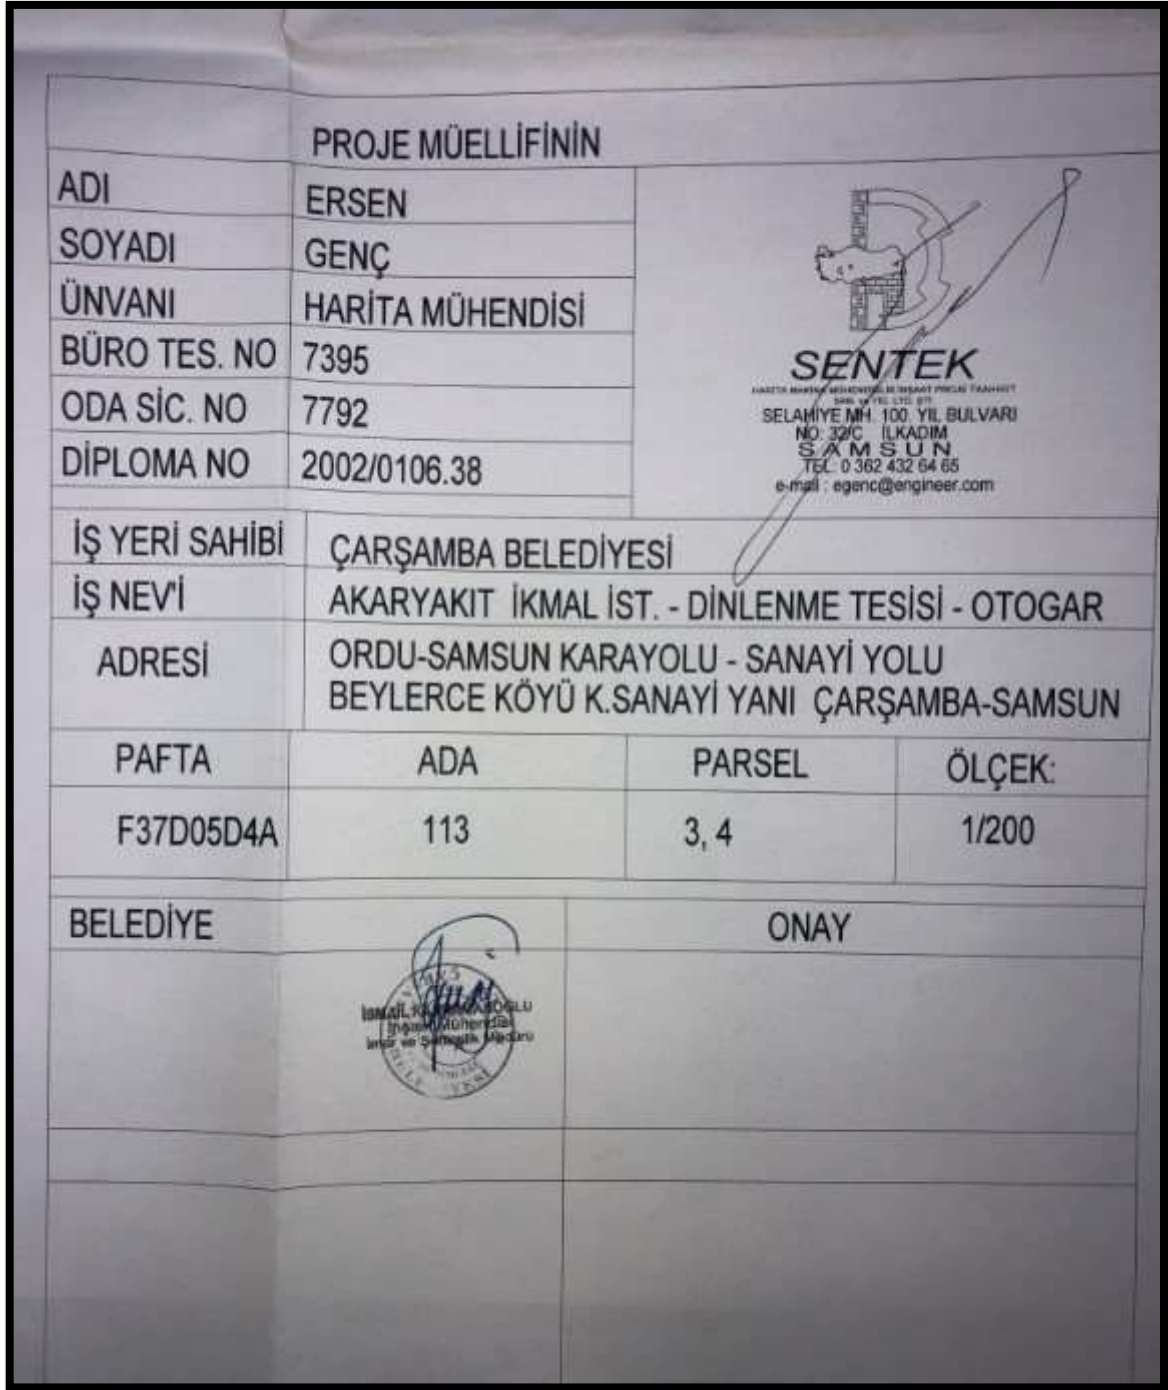 PROJE MÜELLİFİNİN
ADI ERSEN
SOYADI GENÇ
ÜNVANI HARİTA MÜHENDİSİ
BÜRO TES. NO 7395
ODA SİC. NO 7792
DİPLOMA NO 2002/0106.38
SENTEK
SELAHİYE MH. 100. YIL BULVARI
NO: 32/C İLKADIM
SAMSUN
TEL: 0 362 432 64 65
e-mail : egenc@engineer.com
İŞ YERİ SAHİBİ ÇARŞAMBA BELEDİYESİ
İŞ NEV'İ AKARYAKIT İKMAL İST. - DİNLENME TESİSİ - OTOGAR
ADRESİ ORDU-SAMSUN KARAYOLU - SANAYİ YOLU
BEYLERCE KÖYÜ K.SANAYİ YANI ÇARŞAMBA-SAMSUN
PAFTA ADA PARSEL ÖLÇEK:
F37D05D4A 113 3, 4 1/200
BELEDİYE ONAY
İSMAİL
İnşaat Mühendisi
İmar ve Şehircilik Müdürü